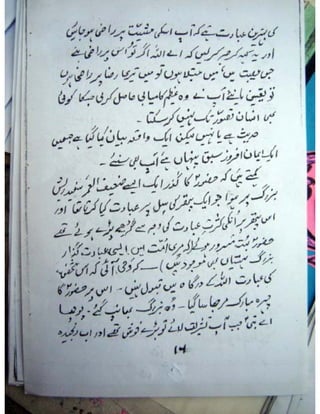 کی بہترین عبادت ہے کہ آپ اسکی مشیت پر راضی ہو جائیں
اور یہ سمجھ کر صبر کریں کہ اے اللہ اگر تو اس پر راضی ہے
جس مصیبت میں میں مبتلا ہوں تو میں تیری رضا پر راضی ہوں
تو یقین مانئے آپ نے وہ عظیم کامیابی حاصل کر لی جسکا کوئی
بھی انسان تصور تک نہیں کر سکتا۔
حدیث ہے یا نہیں لیکن ایک واقعہ بیان کیا گیا ہے جسمیں
ایک ایمان افروز سبق پنہاں ہے آپ بھی سنئے۔
کہتے ہیں کہ حضورؐ کا گذر ایک ایسے ضعیف العمر سفید ریش
بزرگ پر ہوا جو ایک پتھر کی سل پر عبادت کیا کرتا تھا اور
اس پتھر پر انکی کثرت عبادت کی وجہ سے گڑھے پڑے ہوئے تھے
حضورؐ بہت مسرور ہوئے کہ میری امت میں ایسی عبادت گزار
بزرگ ہستیاں بھی موجود ہیں) — کہ وحی آئی کہ اس شخص
کی عبادت اللہ کے درگاہ میں قبول نہیں۔ اس پر حضورؐ کا
چہرہ مبارک مرجھا سا گیا۔ وہ بزرگ بھانپ گئے۔ پوچھا
اے نبی جب آپ تشریف لائے تو بڑے خوش تھے اور اب رنجیدہ
۱۶